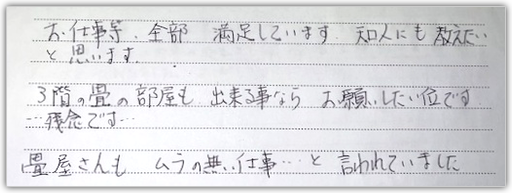 お仕事等、全部 満足しています 知人にも教えたい
と思います。
3階の畳の部屋も 出来る事なら お願いしたい位です
…残念です…
畳屋さんも ムラの無い仕事…と 言われていました